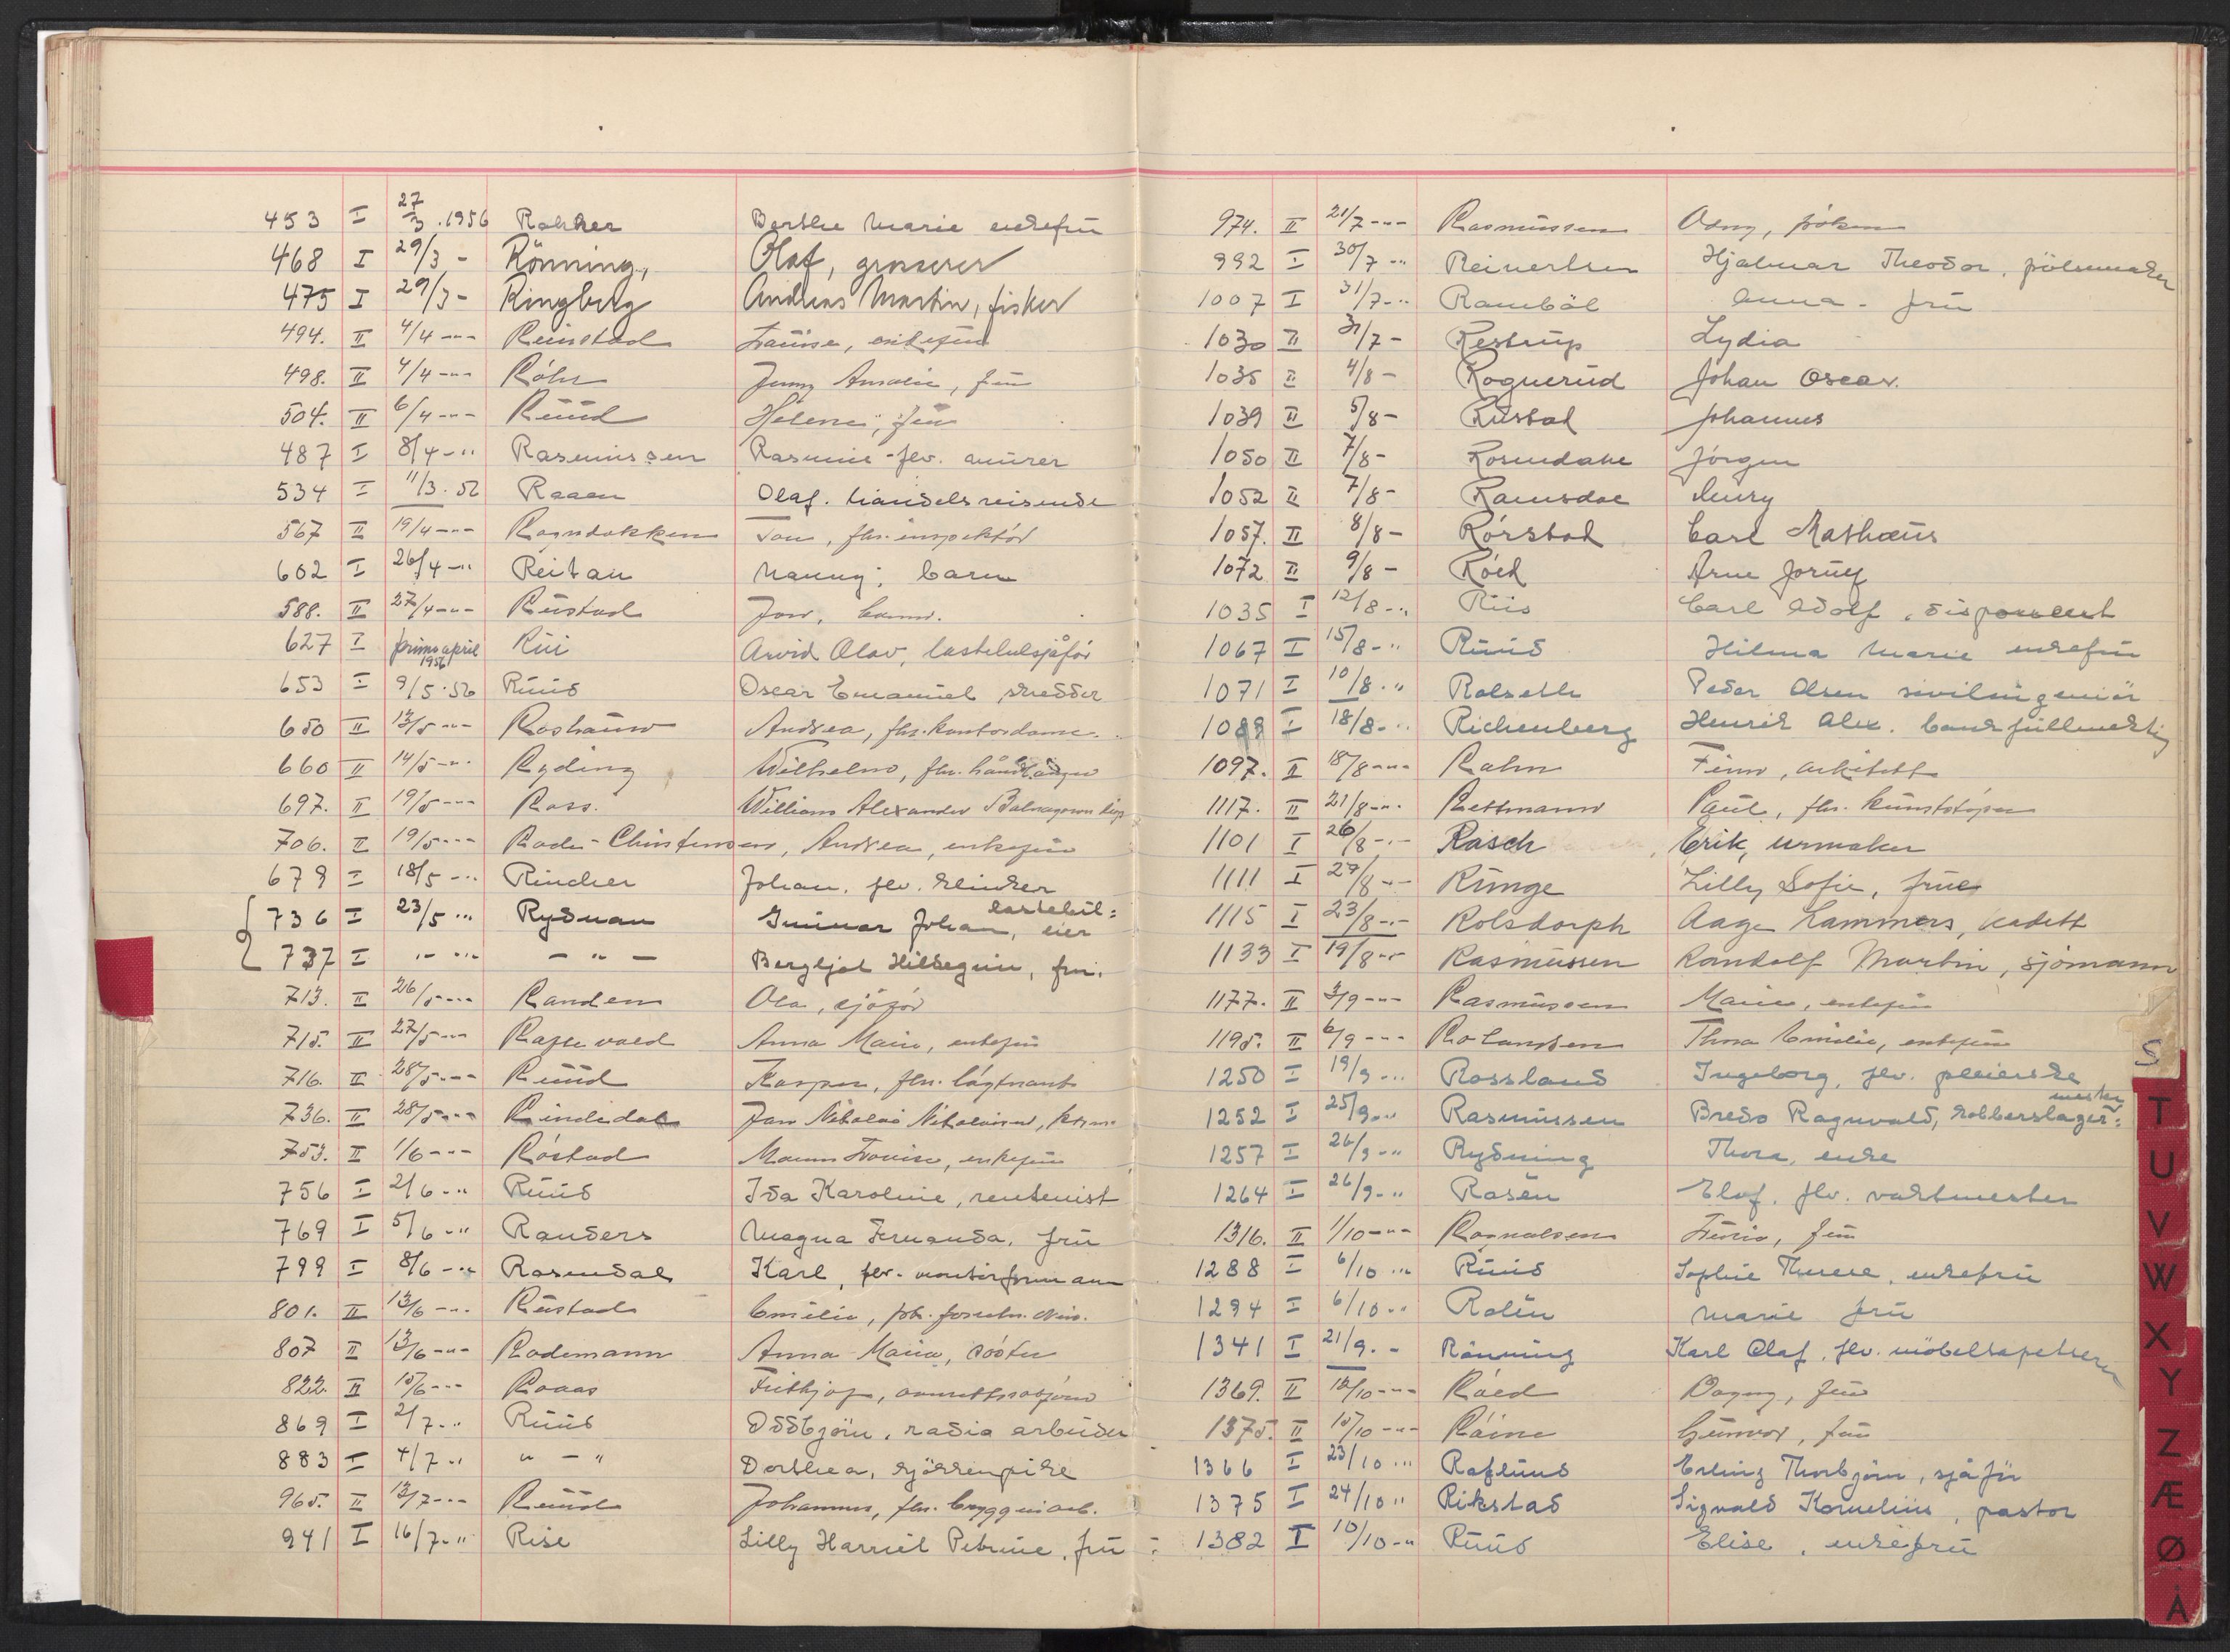 453 I 27/3 .1956 Rohker Berthe Marie enkefrü
468 I 29/3 - Rönning, Olaf, grosserer
475 I 29/3 - Ringberg Andreas Martin, fisker
494. II 4/4 -"- Reinstad enkefrü
498. II 4/4 -"- Röhr Jenny Amalie, frü
504. II 6/4 -"- Rüüd Helene, frü
487 I 8/4 -" Rasmüssen Rasmine - fhv.
534 I 11/3 . 56 Raaen Olaf. handelsreisende
567 II 19/4 -"- Rogndokken Tov, fhv. inspektör
602 I 26/4 -" Reitan Nanny, barn
588. II 27/4 -"- Rüstad Jon, barn.
627 I primo april 1956 Rüi Arvid Olav, lastebilsjåför
653 I 9/5 . 56 Rüüd Oscar Emanüel skredder
650 II 13/5 -"- Roshaüw Andrea, fhv. kontordame.
660 II 14/5 -"- Ryding Wilhelm, fhv. håndlanger
697. II 19/5 -"- Ross. William Alexander
706. II 19/5 -"- Rode-Christensen, Andrea, enkefrü
679 I 18/5 -" Rincker Johan. fhv. klinker
736 I 23/5 " Rydman Günnar Johan, lastebil= eier
737 I " - " - " - Bergljot Hildegün, frü.
713. II 26/5 -"- Randem Ola, sjåför
715. II 27/5 -"- Ragnvald Anna Marie, enkefrü
716. II 28/5 -"- Rüüd Kasper, fhv. løytnant
736. II 28/5 -"- Rindedal Jan Nikolai
753. II 1/6 -"- Röstad enkefrü
756 I 2/6 -" Rüüd Ida Karoline, rentenist
769 I 5/6 -" Randers Magna Fernanda. frü
799 I 8/6 -" Rosendal Karl, fhv. montörformann
801. II 13/6 -". Rüstad Emilie,
807 II 13/6 -"- Rodemann Anna Maria, söster
822. II 15/6 -"- Roaas Fritjof,
869 I 2/7 -" Rüüd Oddbjörn, radio arbeider
883 I 4/7 -" " - " Dorthea, kjökkenpike
965. II 13/7 -"- Rüüd Johannes, fhv. bryggeriarb.
941 I 16/7 -" Rise Lilly Harriet Petrine. frü
974. II 21/7 -"- Rasmüssen Odny, fröken
992 I 30/7 -" Reinertsen Hjalmar Theodor. pölsemaker
1007 I 31/7 -" Ramböl Anna - frü
1030 II 31/7 - Restrüp Lydia
1035 II 4/8 - Rognerüd Johan Oscar.
1039 II 5/8 - Rüstad Johannes
1050 II 7/8 - Rosendahl Jörgen
1052 II 7/8 - Ramsdal Henry
1057. II 8/8 - Rörstad Carl Mathæüs
1072 II 9/8 - Röed Arne
1035 I 12/8 -" Riis Carl Adolf, disponent
1067 I 15/8 -" Rüüd Hilma Marie enkefrü
1071 I 10/8 -" Rolseth Peder Olsen sivilingeniör
1089 I 18/8 -" Richenberg Henrik Alex. bankfüllmektig
1097. II 18/8 -"- Rahn Finn, arkitekt
1117. II 21/8 -". Rettmann Paül, fhv. künststoper
1101 I 26/8 -"- Rasch Erik, urmaker
1111 I 27/8 -"- Rünge Lilly Sofie, frue
1115 I 23/8 -"- Rolsdorph Aage Lammers, kadett
1133 I 19/8 -"- Rasmüssen Randolf Martin, sjömann
1177. II 3/9 -"- Rasmüssen Marie, enkefrü
1195. II 6/9 -"- Rolandsen Thora Emilie, enkefrü
1250 I 19/9 -" Rossland Ingeborg, fhv. pleierske
1252 I 25/9 -" Rasmüssen Bredo Ragnvald, kobberslager= mester
1257 I 26/9 -" Rydning Thora, enke
1264 I 26/9 -" Rosén Elof, fhv. vaktmester
1316. II 1/10 -"- Rognalsen frü
1288 I 6/10 " Rüüd Sophie Therese. enkefrü
1294 I 6/10 -" Rolén Marie frü
1341 I 21/9. - Rönning Karl Olaf. fhv. möbeltapetserer
1369. II 12/10 -"- Röed Dagny, frü
1375. II 15/10 -"- Råine Günvor, frü
1366 I 23/10 " Raflünd Erling Thorbjörn, sjåför
1375 I 24/10 " Rikstad Sigvald Kornelius, pastor
1382 I 10/10 -" Rüüd Elise, enkefrü
S
T
U
V
W
X
Y
Z
Æ
Ø
Å